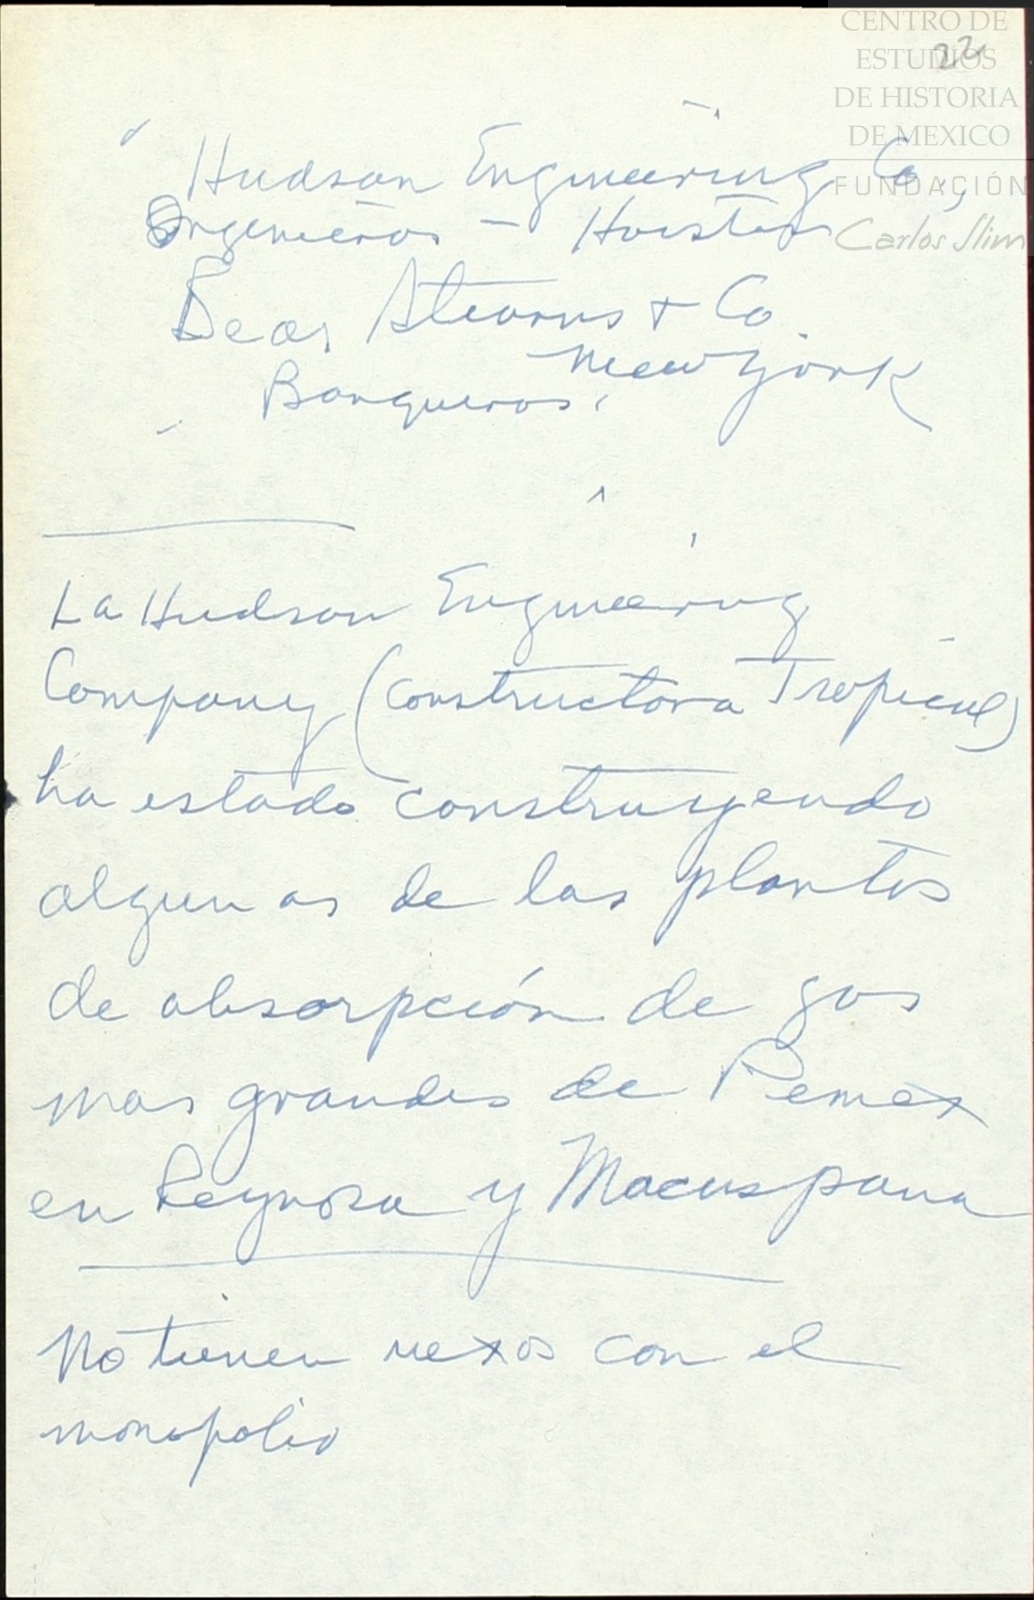 CENTRO DE
ESTUDIOS
DE HISTORIA
DE MEXICO
FUNDACIÓN
Carlos Slim
22
Hudson Engineering Co,
Ingenieros - Houston
Bear Stearns + Co.
New York
Banqueros.
La Hudson Engineering
Company (Constructora Tropical)
ha estado construyendo
algunas de las plantas
de absorpción de gas
mas grandes de Pemex
en Reynosa y Macuspana
No tienen nexos con el
monopolio